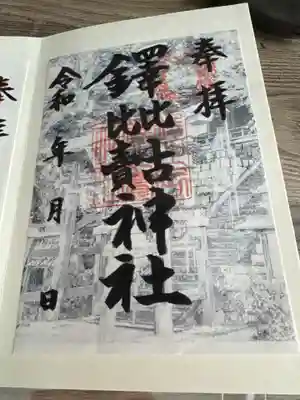 奉拝
鐸
比古
比賣
神社
令和 年 月 日